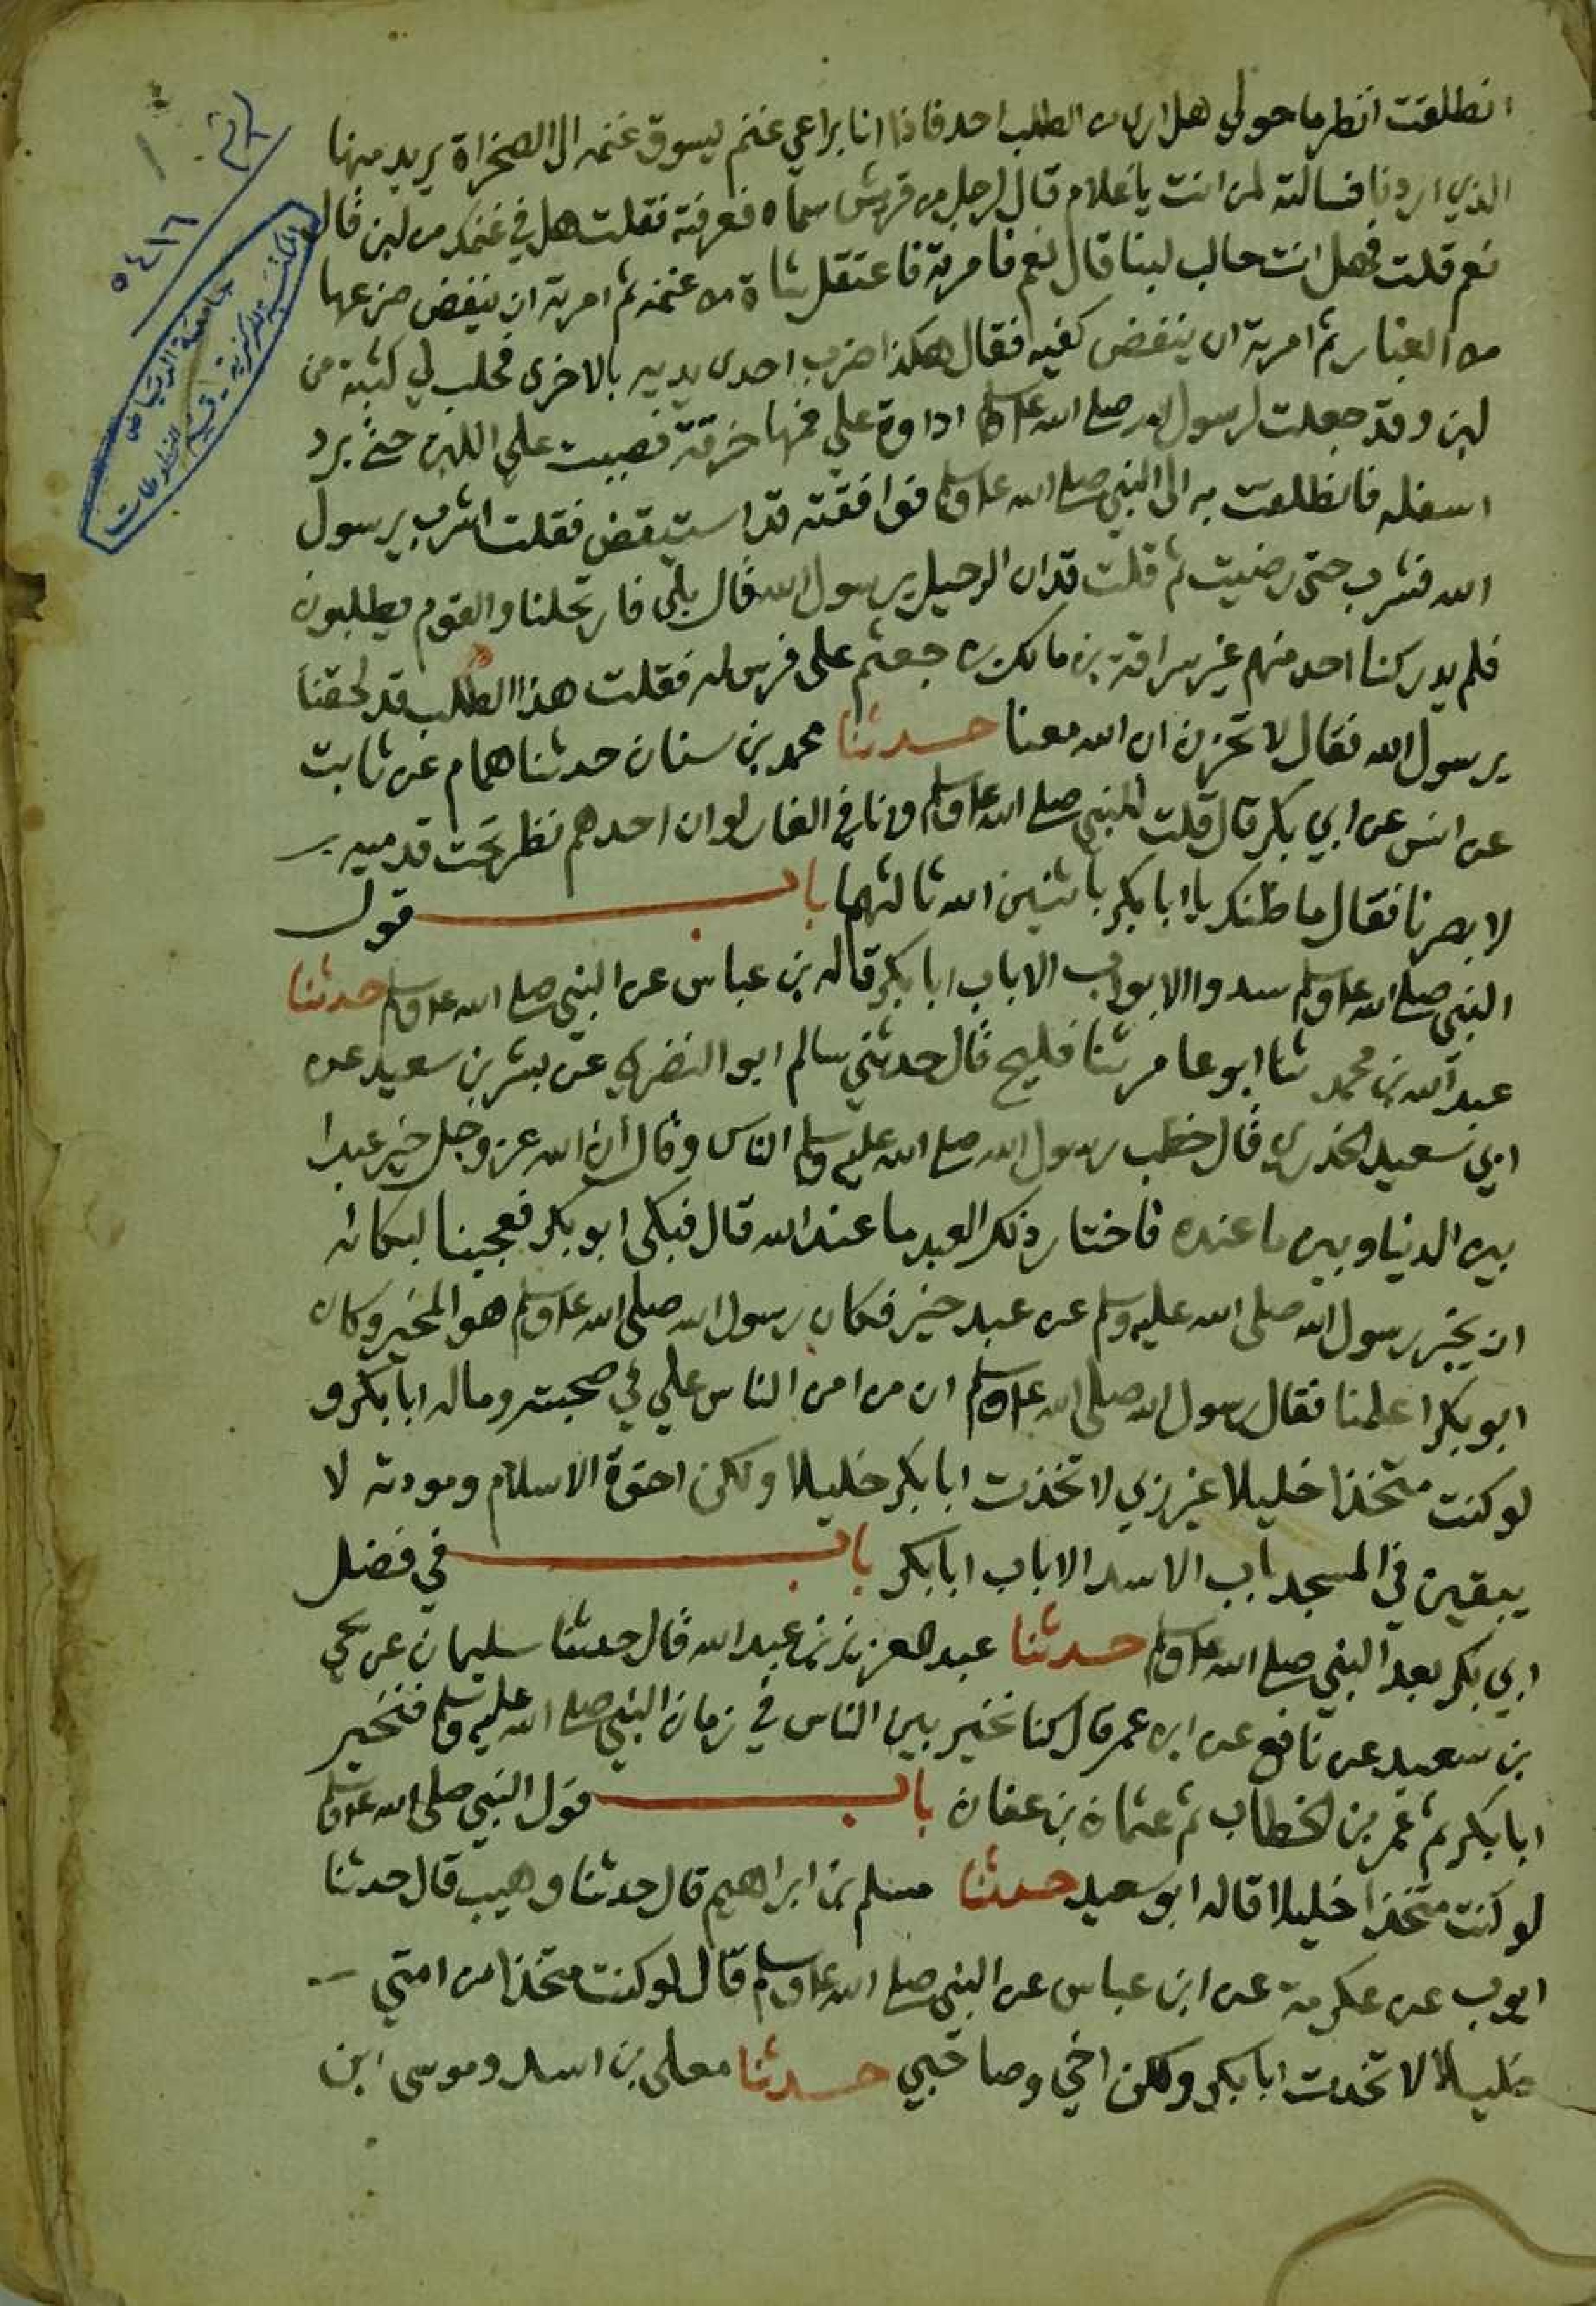 انطلقت انظر ما حولي هل ارى من الطلب احد فاذا انا براعي غنم يسوق غنمه الى الصخراة يريد منها
الذي اردنا فسالته لمن انت يا غلام قال لرجل من قريش سماه فعرفته فقلت هل في غنمك من لبن قال
نعم قلت فهل انت حالب لبنا قال نعم فامرته فاعتقل شاة من غنمه ثم امرته ان ينفض ضرعها
من الغبار ثم امرته ان ينفض كفيه فقال هكذا ضرب احدى يديه بالاخرى فحلب لي كثبة من
لبن وقد جعلت لرسول الله صلى الله عليه وسلم اداوة على فمها خرقة فصببت على اللبن حتى برد
اسفله فانطلقت به الى النبي صلى الله عليه وسلم فوافقته قد استيقض فقلت اشرب يرسول
الله فشرب حتى رضيت ثم قلت قد ان الرحيل يرسول الله قال بلى فارتحلنا والقوم يطلبون
فلم يدركنا احد منهم غير سراقة بن مالك بن جعثم على فرس له فقلت هذا الطلب قد لحقنا
يرسول الله فقال لا تحزن ان الله معنا حدثنا محمد بن سنان حدثنا همام عن ثابت
عن انس عن ابي بكر قال قلت للنبي صلى الله عليه وسلم وانا في الغار لو ان احدهم نظر تحت قدميه
لابصرنا فقال ما ظنك يا ابا بكر باثنين الله ثالثهما باب قول
النبي صلى الله عليه وسلم سدوا الابواب الا باب ابا بكر قاله بن عباس عن النبي صلى الله عليه وسلم حدثنا
عبد الله بن محمد ثنا ابو عامر ثنا فليح قال حدثني سالم ابو النضر عن بشر بن سعيد عن
ابي سعيد الخدري قال خطب رسول الله صلى الله عليه وسلم الناس وقال ان الله عز وجل خير عبدا
بين الدنيا وبين ما عنده فاختار ذلك العبد ما عند الله قال فبكى ابو بكر فعجبنا لبكائه
ان يخبر رسول الله صلى الله عليه وسلم عن عبد خير فكان رسول الله صلى الله عليه وسلم هو المخير وكان
ابو بكر اعلمنا فقال رسول الله صلى الله عليه وسلم ان من امن الناس علي في صحبته وماله ابا بكر و
لو كنت متخذا خليلا غير ربي لاتخذت ابا بكر خليلا ولكن اخوة الاسلام ومودته لا
يبقين في المسجد باب الا سد الا باب ابا بكر باب في فضل
ابي بكر بعد النبي صلى الله عليه وسلم حدثنا عبد العزيز بن عبد الله قال حدثنا سليمان عن يحي
بن سعيد عن نافع عن ابن عمر قال كنا نخير بين الناس في زمان النبي صلى الله عليه وسلم فنخير
ابا بكر ثم عمر بن الخطاب ثم عثمان بن عفان باب قول النبي صلى الله عليه وسلم
لو كنت متخذا خليلا قاله ابو سعيد حدثنا مسلم بن ابراهيم قال حدثنا وهيب قال حدثنا
ايوب عن عكرمة عن ابن عباس عن النبي صلى الله عليه وسلم قال لو كنت متخذا من امتي
خليلا لاتخذت ابا بكر ولكن اخي وصاحبي حدثنا معلى بن اسد وموسى ابن
٥٤١٦
جامعة الرياض
المكتبة المركزية - قسم المخطوطات